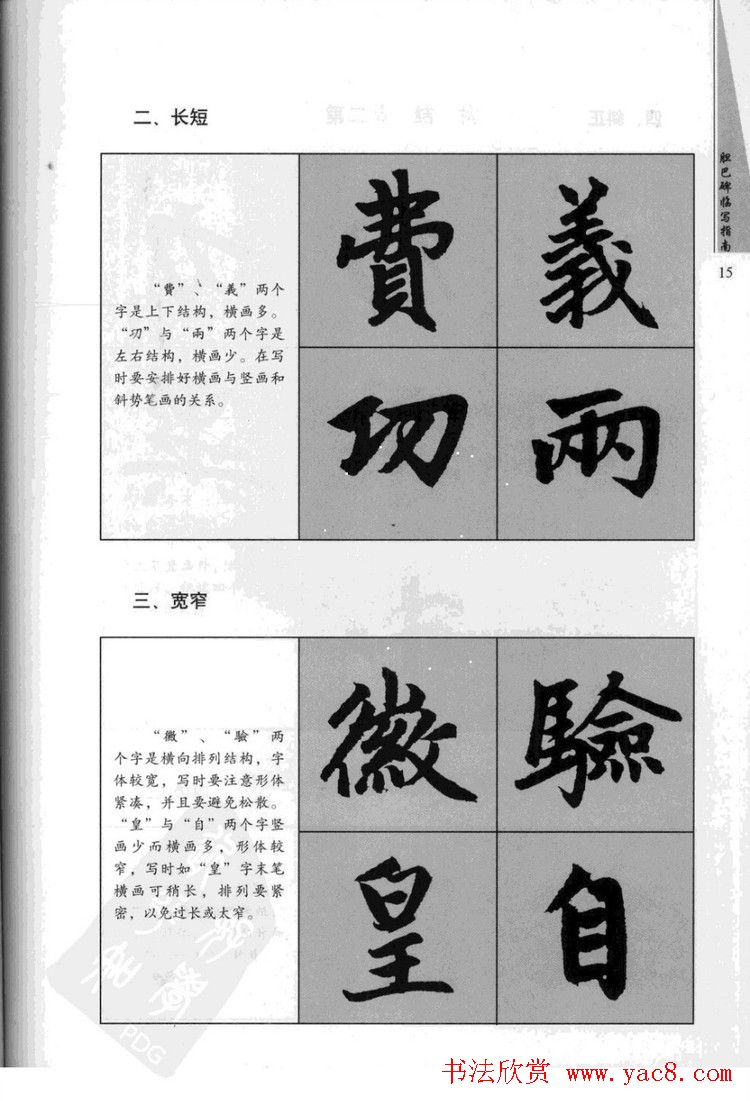 胆巴碑临写指南
15
二、长短
“費”、“義”两个
字是上下结构，横画多。
“㓛”与“兩”两个字是
左右结构，横画少。在写
时要安排好横画与竖画和
斜势笔画的关系。
費 義
㓛 兩
三、宽窄
“徽”、“驗”两
个字是横向排列结构，字
体较宽，写时要注意形体
紧凑，并且要避免松散。
“皇”与“自”两个字竖
画少而横画多，形体较
窄，写时如“皇”字末笔
横画可稍长，排列要紧
密，以免过长或太窄。
徽 驗
皇 自
PDG
书法欣赏 www.yac8.com